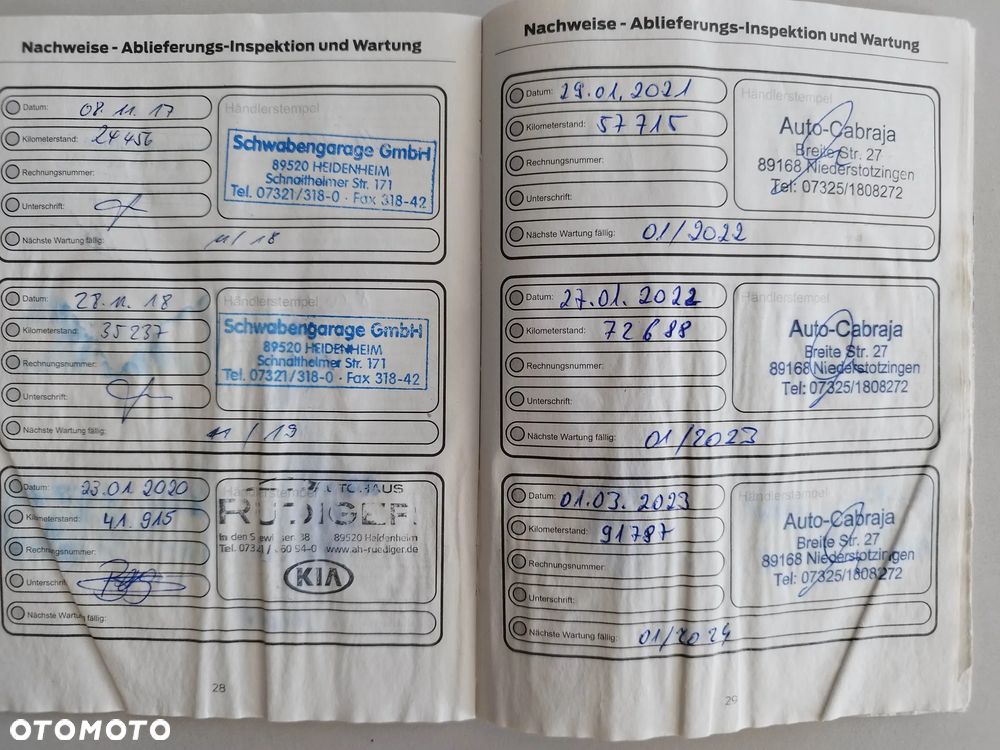 Nachweise - Ablieferungs-Inspektion und Wartung
Datum: 08.11.17
Kilometerstand: 24456
Rechnungsnummer:
Unterschrift:
Nächste Wartung fällig: 11/18
Händlerstempel
Schwabengarage GmbH
89520 HEIDENHEIM
Schnaitheimer Str. 171
Tel. 07321/318-0 · Fax 318-42
Datum: 28.11.18
Kilometerstand: 35237
Rechnungsnummer:
Unterschrift:
Nächste Wartung fällig: 11/19
Händlerstempel
Schwabengarage GmbH
89520 HEIDENHEIM
Schnaitheimer Str. 171
Tel. 07321/318-0 · Fax 318-42
Datum: 23.01.2020
Kilometerstand: 41.915
Rechnungsnummer:
Unterschrift
Nächste Wartung fällig:
Händlerstempel
AUTOHAUS
RÜDIGER
In den 38 89520 Heidenheim
Tel. 60 54-0 www.ah-ruediger.de
KIA
28
Nachweise - Ablieferungs-Inspektion und Wartung
Datum: 29.01.2021
Kilometerstand: 57715
Rechnungsnummer:
Unterschrift:
Nächste Wartung fällig: 01/2022
Händlerstempel
Auto-Cabraja
Breite Str. 27
89168 Niederstotzingen
Tel: 07325/1808272
Datum: 27.01.2022
Kilometerstand: 72688
Rechnungsnummer:
Unterschrift:
Nächste Wartung fällig: 01/2023
Händlerstempel
Auto-Cabraja
Breite Str. 27
89168 Niederstotzingen
Tel: 07325/1808272
Datum: 01.03.2023
Kilometerstand: 91787
Rechnungsnummer:
Unterschrift:
Nächste Wartung fällig: 01/2024
Händlerstempel
Auto-Cabraja
Breite Str. 27
89168 Niederstotzingen
Tel: 07325/1808272
29
OTOMOTO